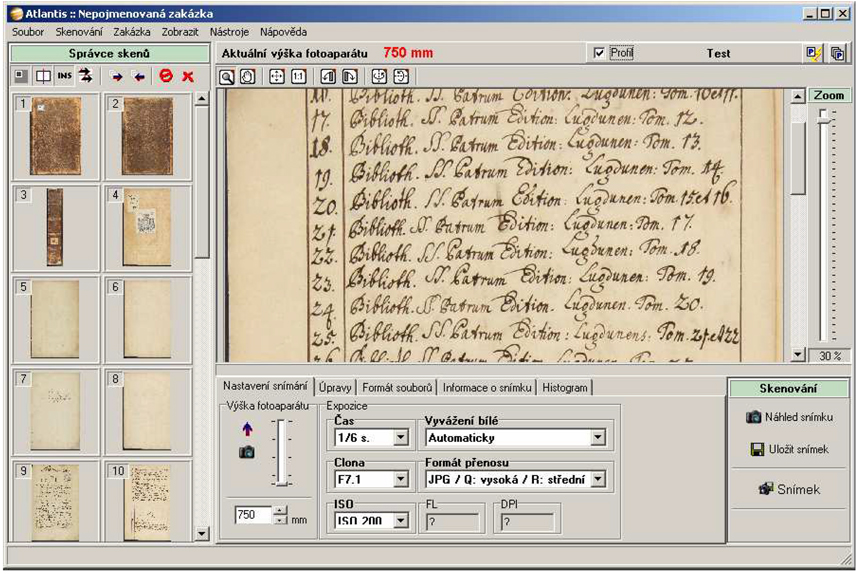 Atlantis :: Nepojmenovaná zakázka
Soubor Skenování Zakázka Zobrazit Nástroje Nápověda
Správce skenů
Aktuální výška fotoaparátu 750 mm
Profil
Test
INS
1:1
Zoom
1
2
3
4
5
6
7
8
9
10
17. Biblioth. SS. Patrum Edition: Lugdunen: Tom. 12.
18. Biblioth. SS. Patrum Edition: Lugdunen: Tom. 13.
19. Biblioth. SS. Patrum Edition: Lugdunen: Tom. 14.
20. Biblioth. SS. Patrum Edition: Lugdunen: Tom. 15 et 16.
21. Biblioth. SS. Patrum Edition: Lugdunen: Tom. 17.
22. Biblioth. SS. Patrum Edition: Lugdunen: Tom. 18.
23. Biblioth. SS. Patrum Edition: Lugdunen: Tom. 19.
24. Biblioth. SS. Patrum Edition. Lugdunen: Tom. 20.
25. Biblioth. SS. Patrum Edition: Lugdunens: Tom. 21 et 22
30 %
Nastavení snímání Úpravy Formát souborů Informace o snímku Histogram
Výška fotoaparátu
750 mm
Expozice
Čas
1/6 s.
Vyvážení bílé
Automaticky
Clona
F7.1
Formát přenosu
JPG / Q: vysoká / R: střední
ISO
ISO 200
FL
?
DPI
?
Skenování
Náhled snímku
Uložit snímek
Snímek